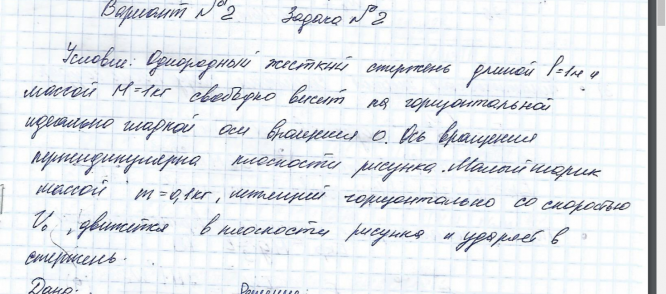 Вариант №2 Задача №2
Условие: Однородный жесткий стержень длиной l=1м и
массой M=1кг свободно висит на горизонтальной
идеально гладкой оси вращения О. Ось вращения
перпендикулярна плоскости рисунка. Малый шарик
массой m=0,1кг, летящий горизонтально со скоростью
V₀, движется в плоскости рисунка и ударяет в
стержень.
Дано: Решение: